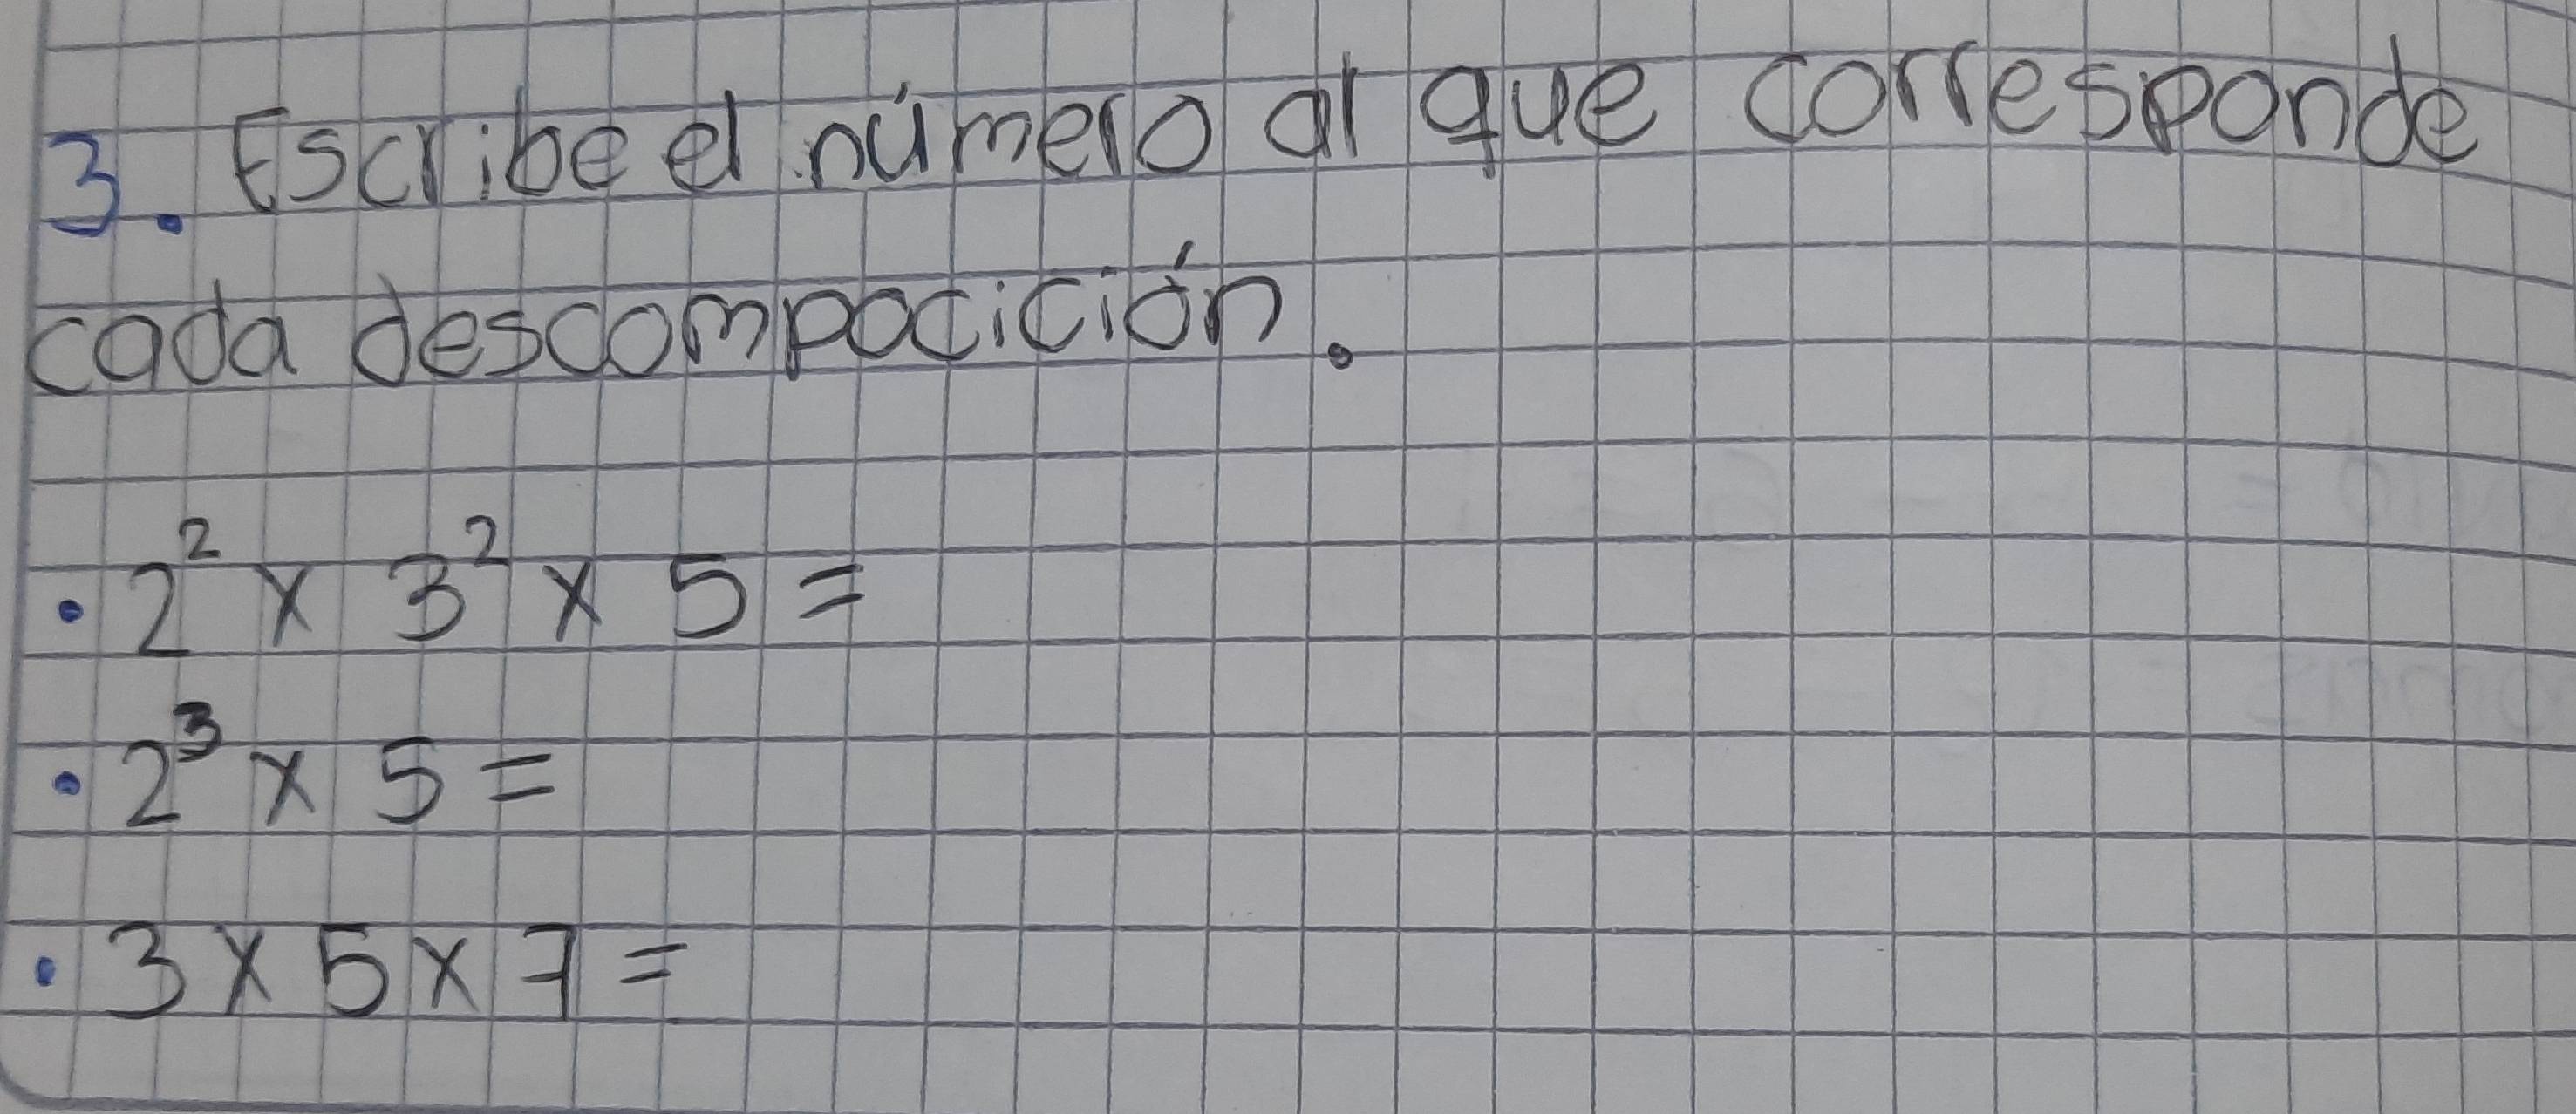 3. Escribe el número al que corresponde
cada descompocición.
• 2² x 3² x 5 =
• 2³ x 5 =
• 3 x 5 x 7 =